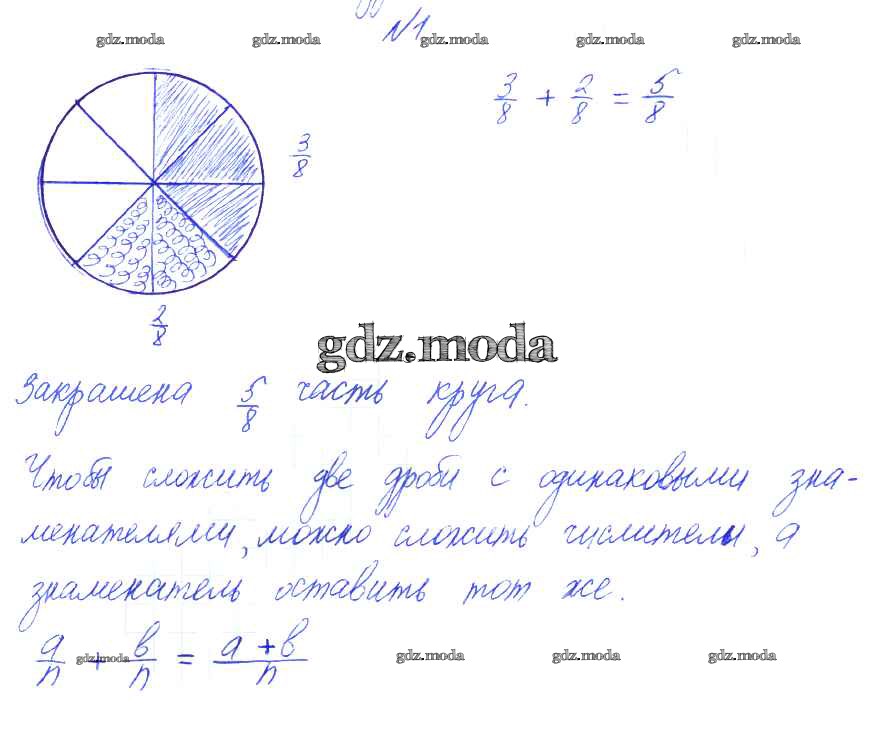 №1
gdz.moda gdz.moda gdz.moda gdz.moda gdz.moda
3/8 + 2/8 = 5/8
3/8
2/8
gdz.moda
Закрашена 5/8 часть круга.
Чтобы сложить две дроби с одинаковыми зна-
менателями, можно сложить числители, а
знаменатель оставить тот же.
a/n + в/n = a + в/n
gdz.moda gdz.moda gdz.moda gdz.moda